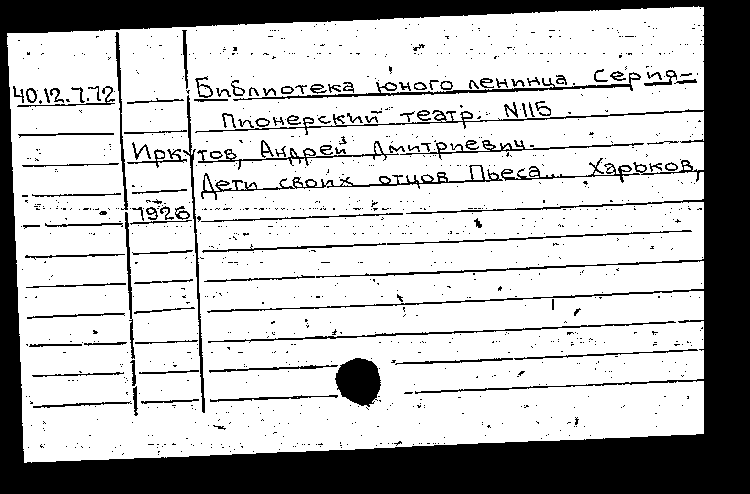 40.12.7.72 Библиотека юного ленинца. Серия-
Пионерский театр. N115
Иркутов, Андрей Дмитриевич.
Дети своих отцов Пьеса... Харьков,
1926.